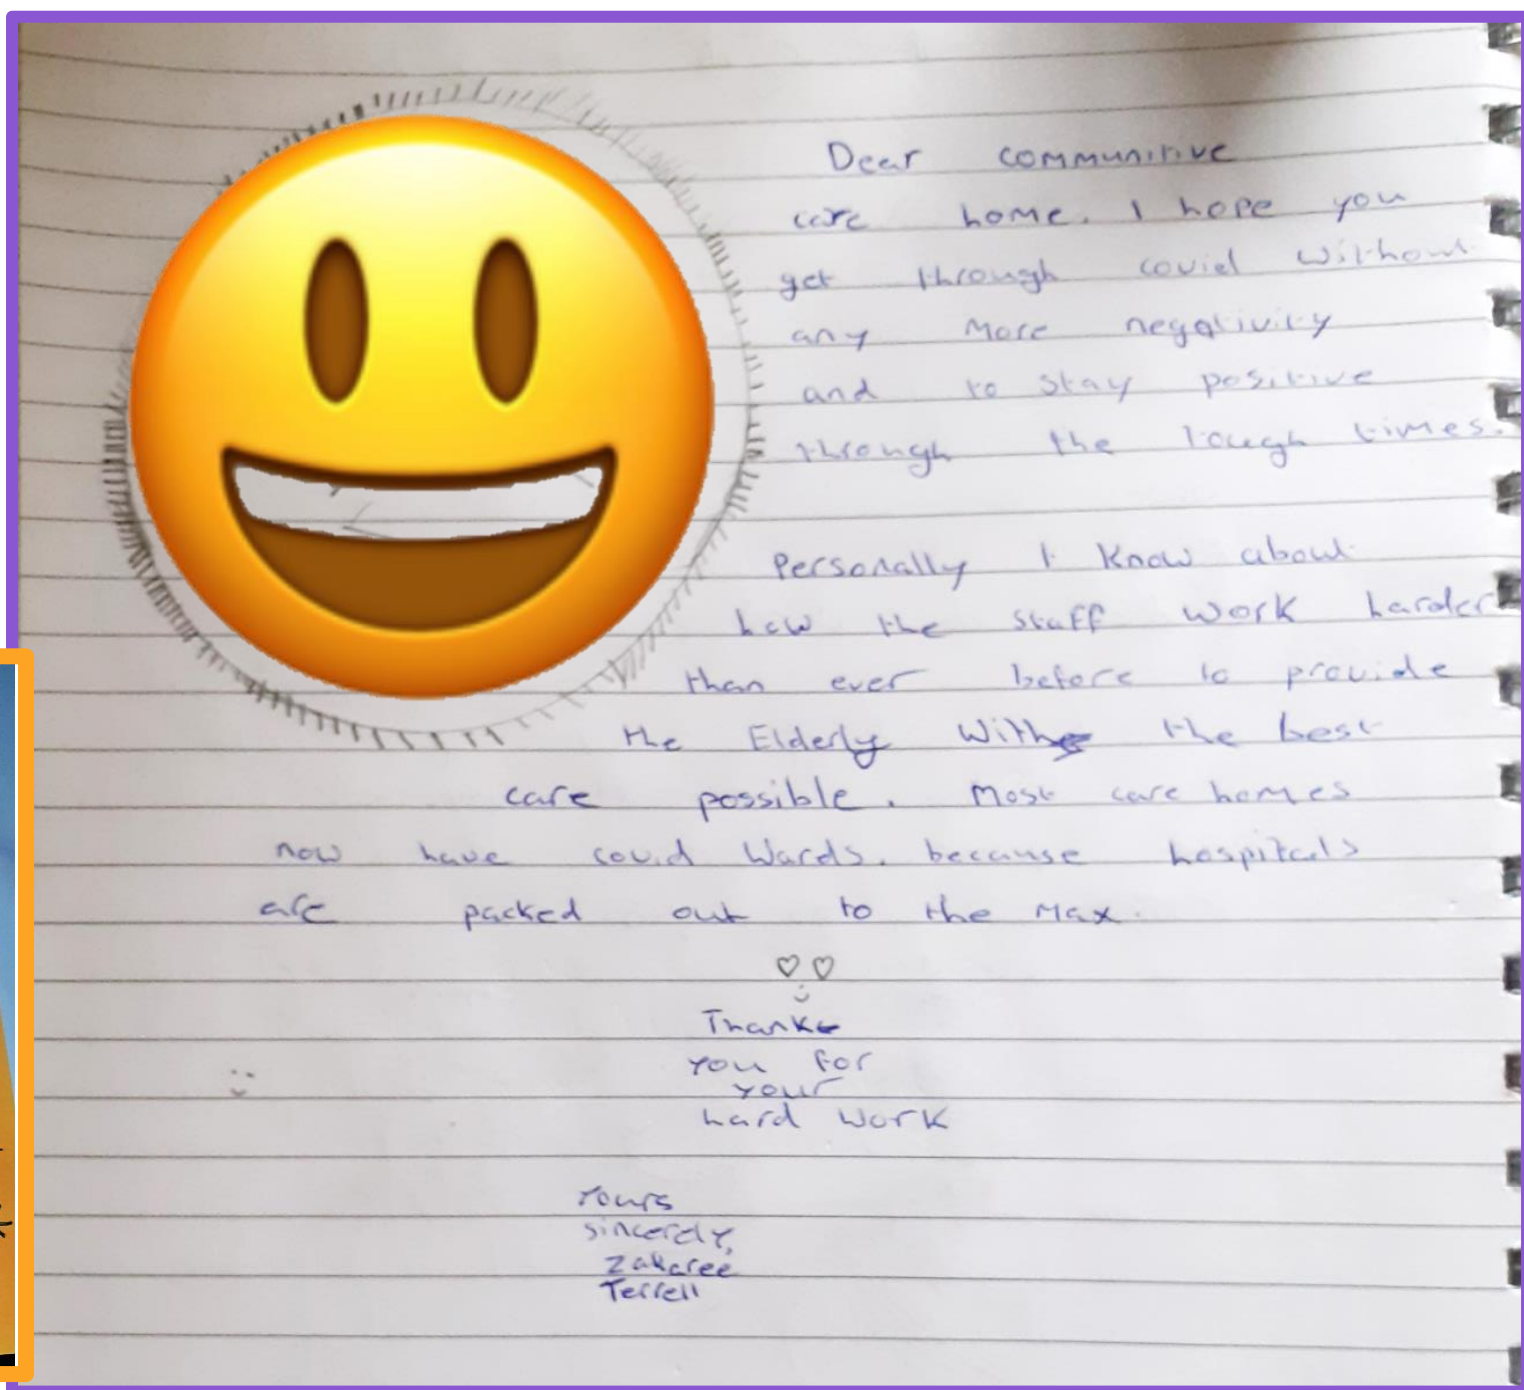 Dear communitive
care home. I hope you
get through covid without
any more negativity
and to stay positive
through the tough times.
Personally I know about
how the staff work harder
than ever before to provide
the Elderly with the best
care possible. Most care homes
now have covid wards. because hospitals
are packed out to the max.
♡♡
Thank
you for
your
hard work
Yours
sincerely,
Zakaree
Terrell